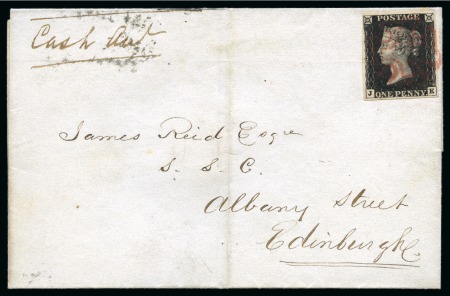 Cash Act
POSTAGE
J K
ONE PENNY
James Reid Esqre
S. S. C.
Albany Street
Edinburgh